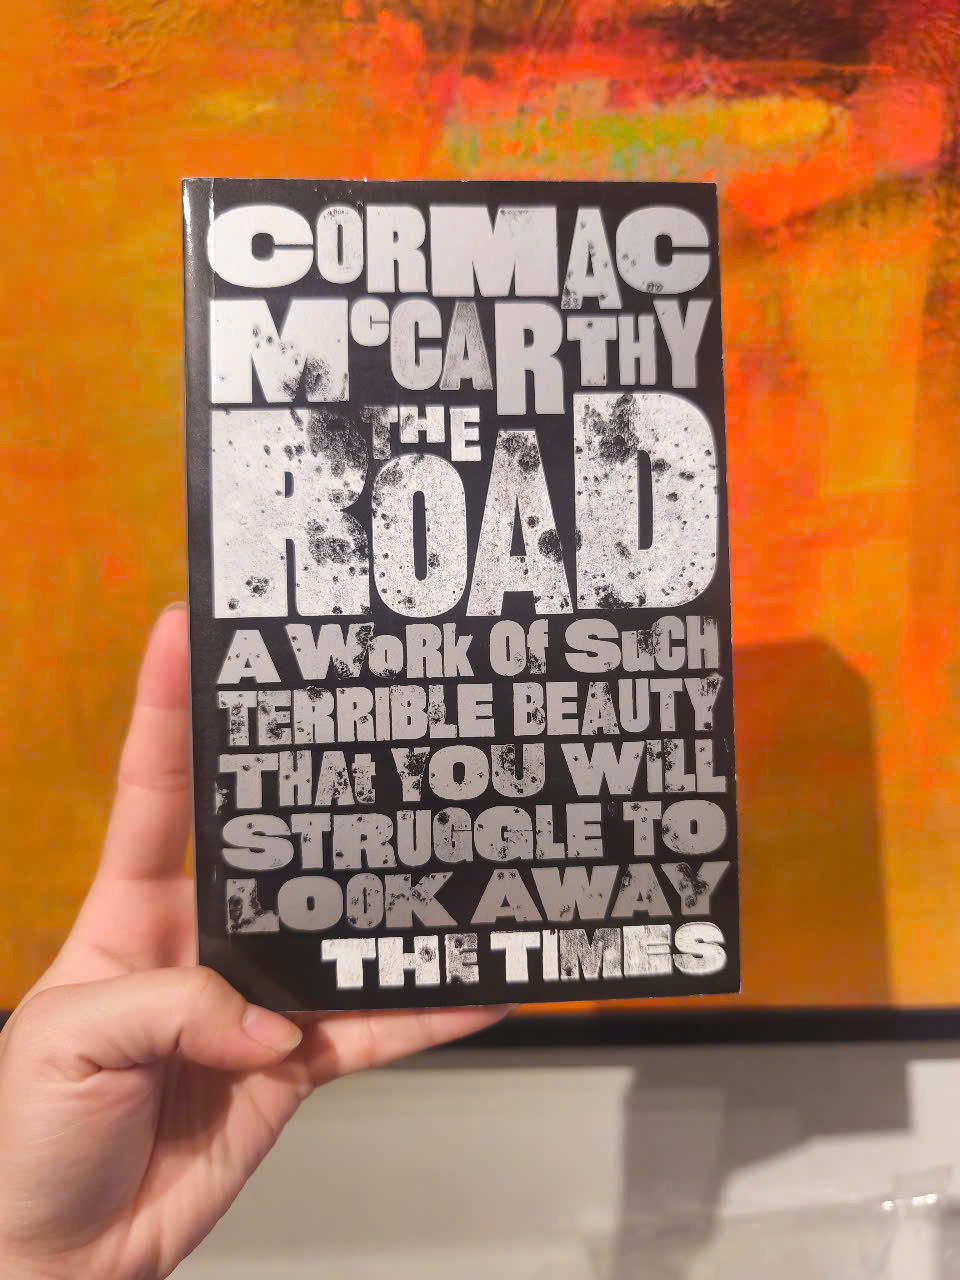 CORMAC
McCARTHY
THE
ROAD
A WORK Of SuCH
TERRIBLE BEAUTY
THAt YOU WILL
STRUGGLE TO
LOOK AWAY
THE TIMES